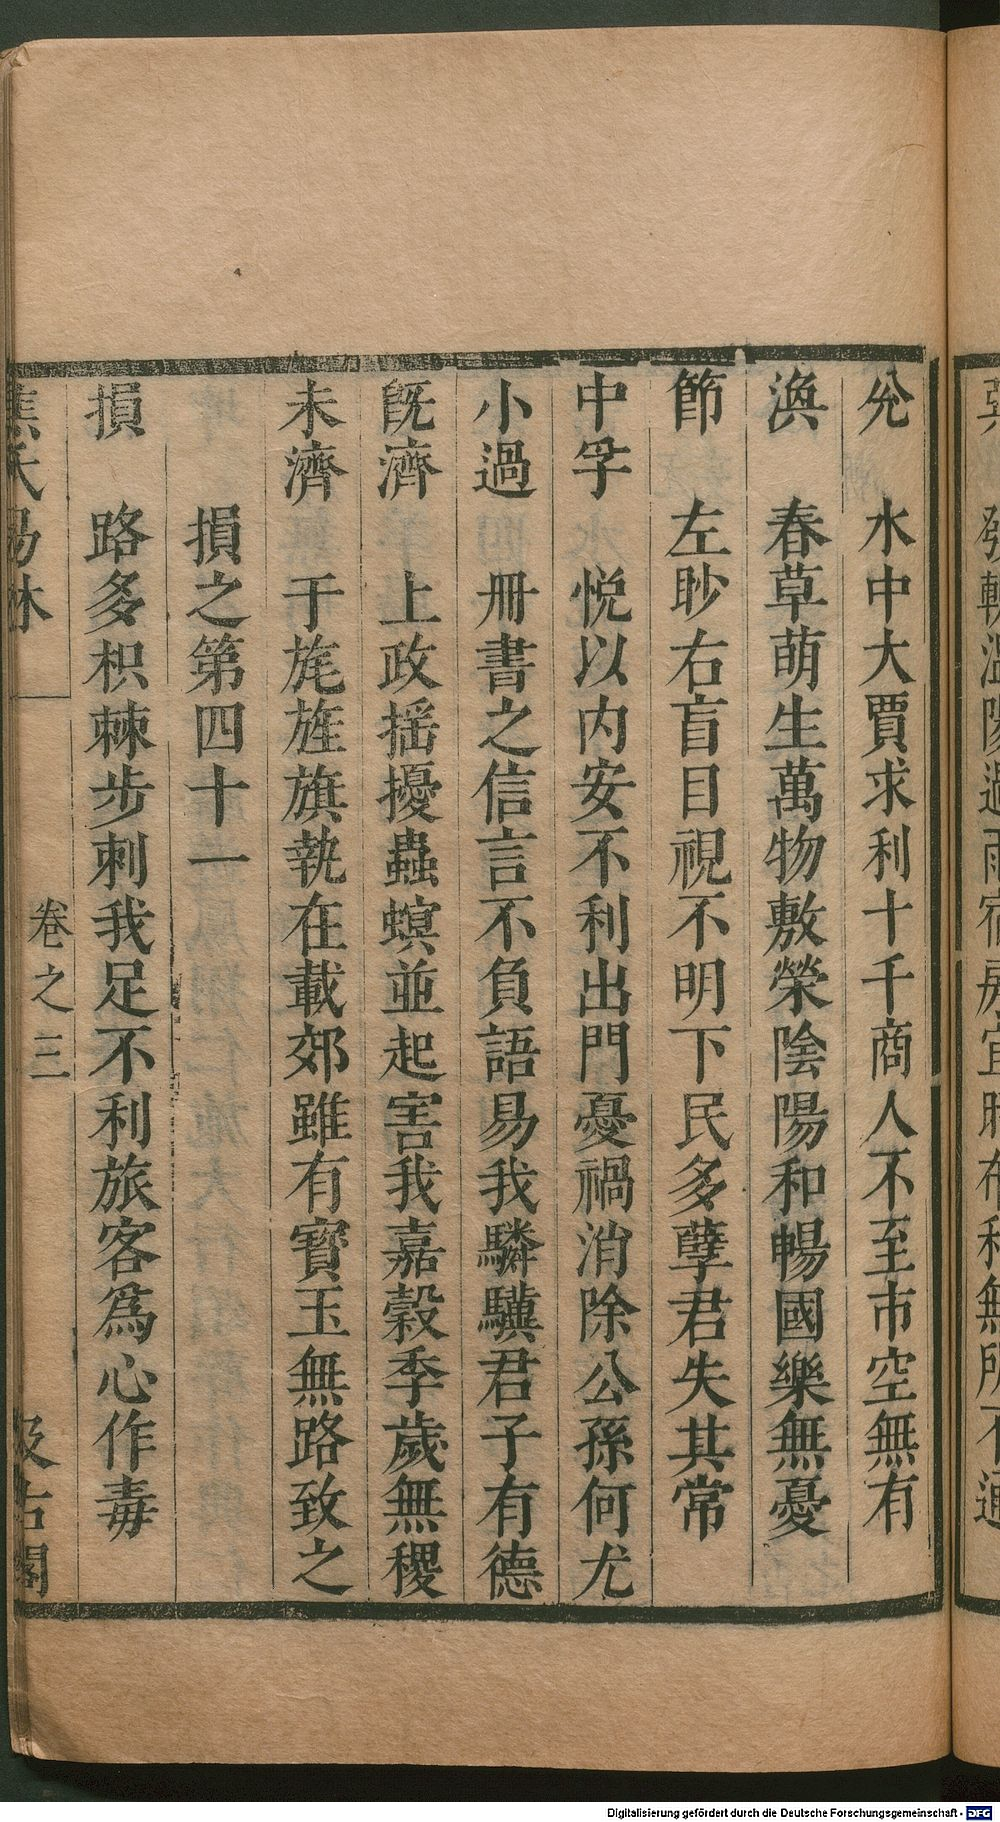 兊　水中大賈求利十千商人不至市空無有
渙　春草萌生萬物敷榮陰陽和暢國樂無憂
節　左眇右盲目視不明下民多孽君失其常
中孚　悅以内安不利出門憂禍消除公孫何尤
小過　冊書之信言不負語易我驎驥君子有德
旣濟　上政揺擾蟲螟並起害我嘉穀季歲無稷
未濟　于旄旌旗執在載郊雖有寳玉無路致之
損之第四十一
損　路多枳棘步刺我足不利旅客爲心作毒
焦氏易林　卷之三　汲古閣
Digitalisierung gefördert durch die Deutsche Forschungsgemeinschaft - DFG